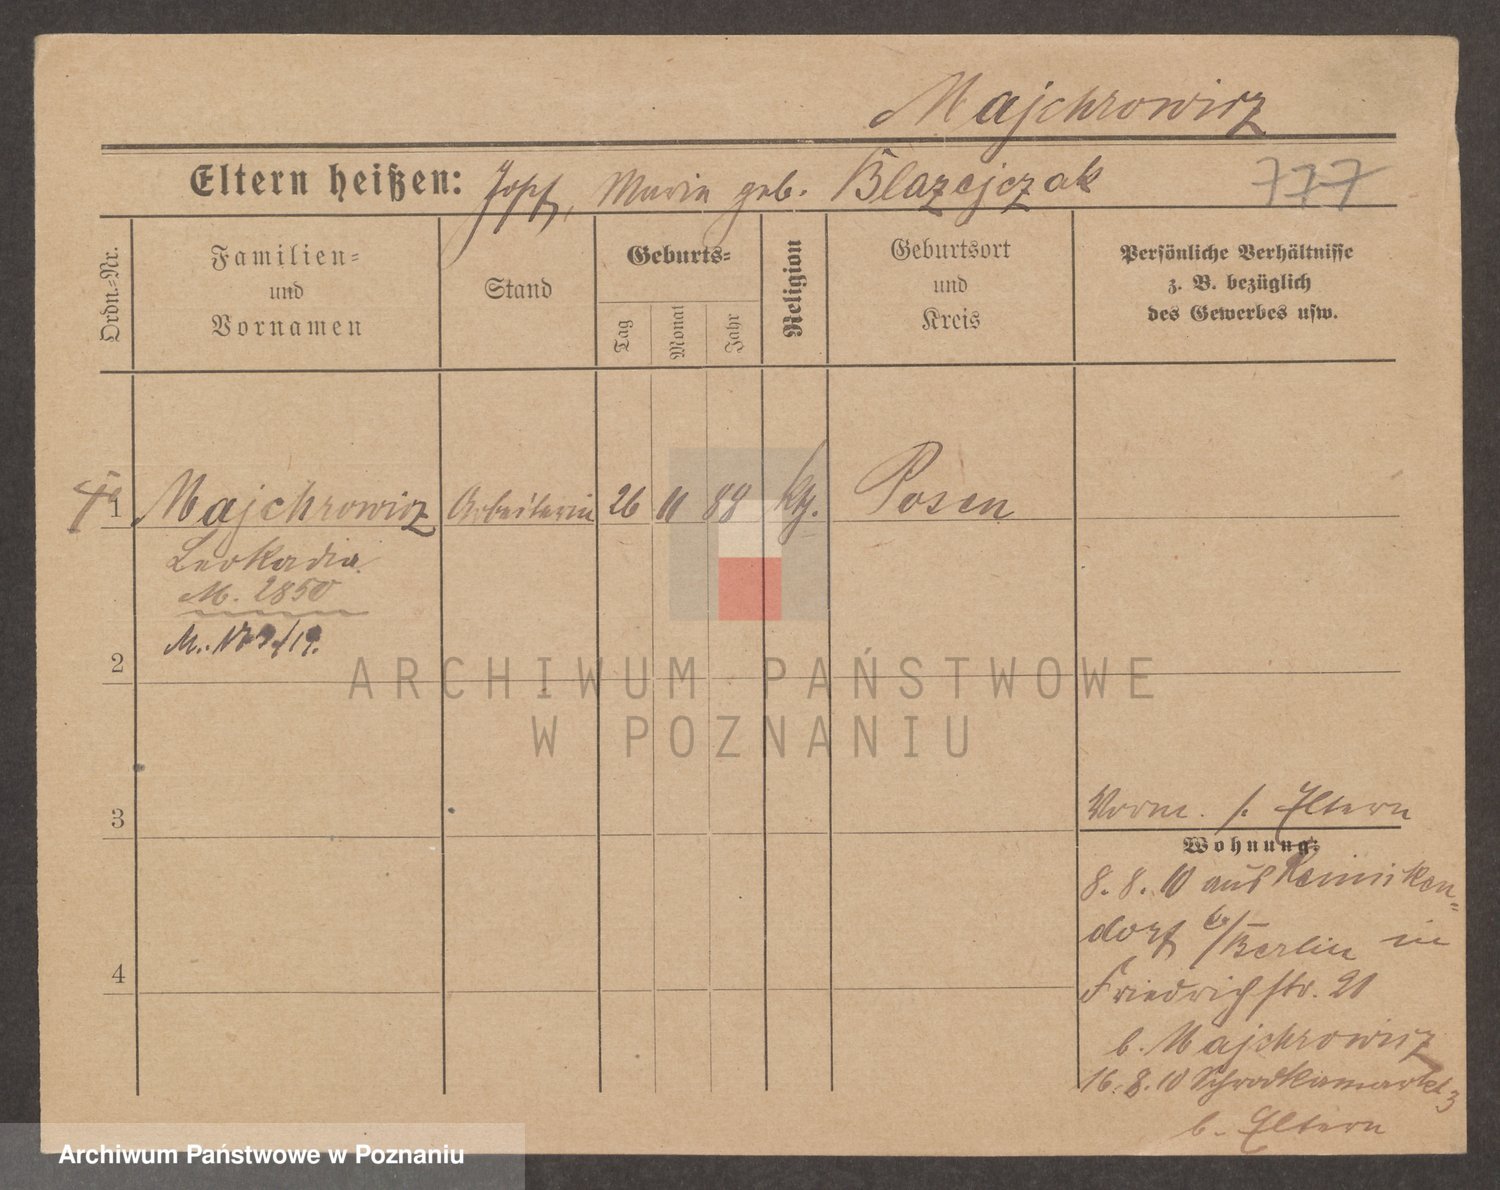 Majchrowicz
Eltern heißen: Josef, Maria geb. Blazejczak
777
Ordn.-Nr.
Familien-
und
Vornamen
Stand
Geburts-
Tag
Monat
Jahr
Religion
Geburtsort
und
Kreis
Persönliche Verhältnisse
z. B. bezüglich
des Gewerbes usw.
1 Majchrowicz Arbeiterin 26 11 88 kth. Posen
Leokadia
M. 2850
M.
2
ARCHIWUM PAŃSTWOWE
W POZNANIU
3
Vorm. s. Eltern
Wohnung:
8. 8. 10 aus Reiniken-
dorf b/Berlin in
4
Friedrichstr. 21
b. Majchrowicz
16. 8. 10 Schrodkamarkt 3
b. Eltern
Archiwum Państwowe w Poznaniu